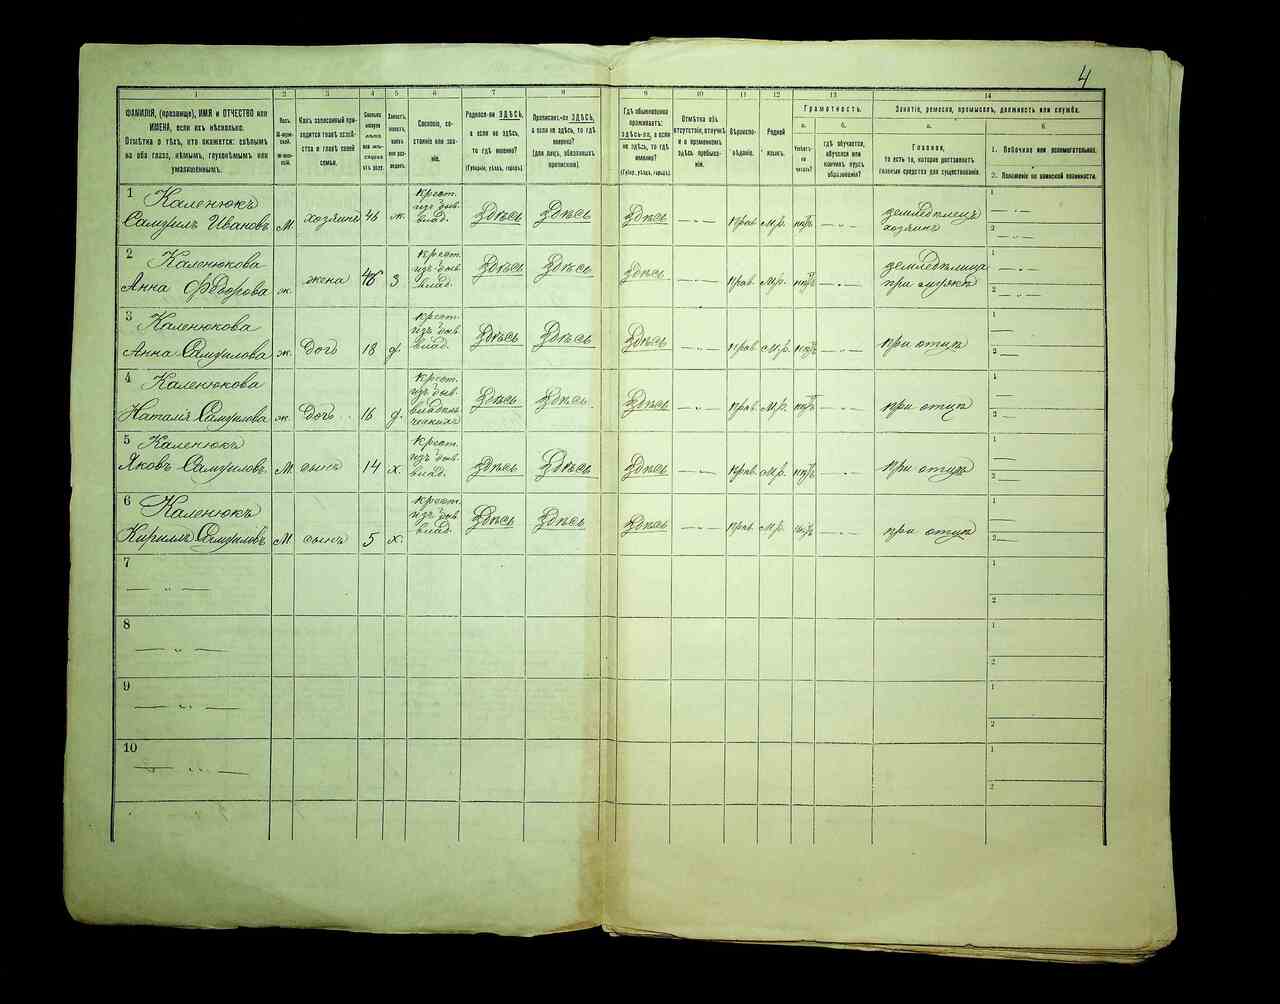 4
1 2 3 4 5 6 7 8 9 10 11 12 13 14
ФАМИЛІЯ, (прозвище), ИМЯ и ОТЧЕСТВО или
ИМЕНА, если ихъ нѣсколько.
Отмѣтка о тѣхъ, кто окажется: слѣпымъ
на оба глаза, нѣмымъ, глухонѣмымъ или
умалишеннымъ.
Полъ.
Какъ записанный при-
ходится главѣ хозяй-
ства и главѣ своей
семьи.
Сословіе, со-
стояніе или зва-
ніе.
Родился-ли ЗДѢСЬ,
а если не здѣсь, то
гдѣ именно?
(Губернія, уѣздъ, городъ)
Приписанъ-ли ЗДѢСЬ,
а если не здѣсь, то гдѣ
именно?
(для лицъ, обязанныхъ
припискою).
Гдѣ обыкновенно
проживаетъ:
здѣсь-ли, а если
не здѣсь, то гдѣ
именно?
(Губер., уѣздъ, городъ)
Отмѣтка объ
отсутствіи, отлучкѣ
и о временномъ
здѣсь пребыва-
ніи.
Вѣроиспо-
вѣданіе.
Родной
языкъ.
Грамотность.
а. б.
Умѣетъ-
ли
читать?
гдѣ обучается,
обучался или
кончилъ курсъ
образованія?
Занятіе, ремесло, промыселъ, должность или служба.
а. б.
Главное,
то есть то, которое доставляетъ
главныя средства для существованія.
1. Побочное или вспомогательное.
2. Положеніе по воинской повинности.
1 Каленюкъ
Самуилъ Ивановъ М хозяинъ 46 ж. Крест. изъ быв. влад. Здѣсь Здѣсь Здѣсь — Прав. М.р. нѣтъ — земледѣлецъ хозяинъ 1 — 2 —
2 Каленюкова
Анна Ѳедорова ж. жена 46 з Крест. изъ быв. влад. Здѣсь Здѣсь Здѣсь — Прав. М.р. нѣтъ — земледѣлица при мужѣ 1 — 2 —
3 Каленюкова
Анна Самуилова ж. Дочь 18 д. Крест. изъ быв. влад. Здѣсь Здѣсь Здѣсь — Прав. М.р. нѣтъ — при отцѣ 1 — 2 —
4 Каленюкова
Наталія Самуилова ж. Дочь 16 д. Крест. изъ быв. владѣльческихъ Здѣсь Здѣсь Здѣсь — Прав. М.р. нѣтъ — при отцѣ 1 2 —
5 Каленюкъ
Яковъ Самуиловъ М. сынъ 14 х. Крест. изъ быв. влад. Здѣсь Здѣсь Здѣсь — Прав. М.р. нѣтъ — при отцѣ 1 — 2 —
6 Каленюкъ
Кириллъ Самуиловъ М. сынъ 5 х. Крест. изъ быв. влад. Здѣсь Здѣсь Здѣсь — Прав. М.р. нѣтъ — при отцѣ 1 — 2 —
7 — „ — 1 2
8 — „ — 1 2
9 — „ — 1 2
10 — „ — 1 2